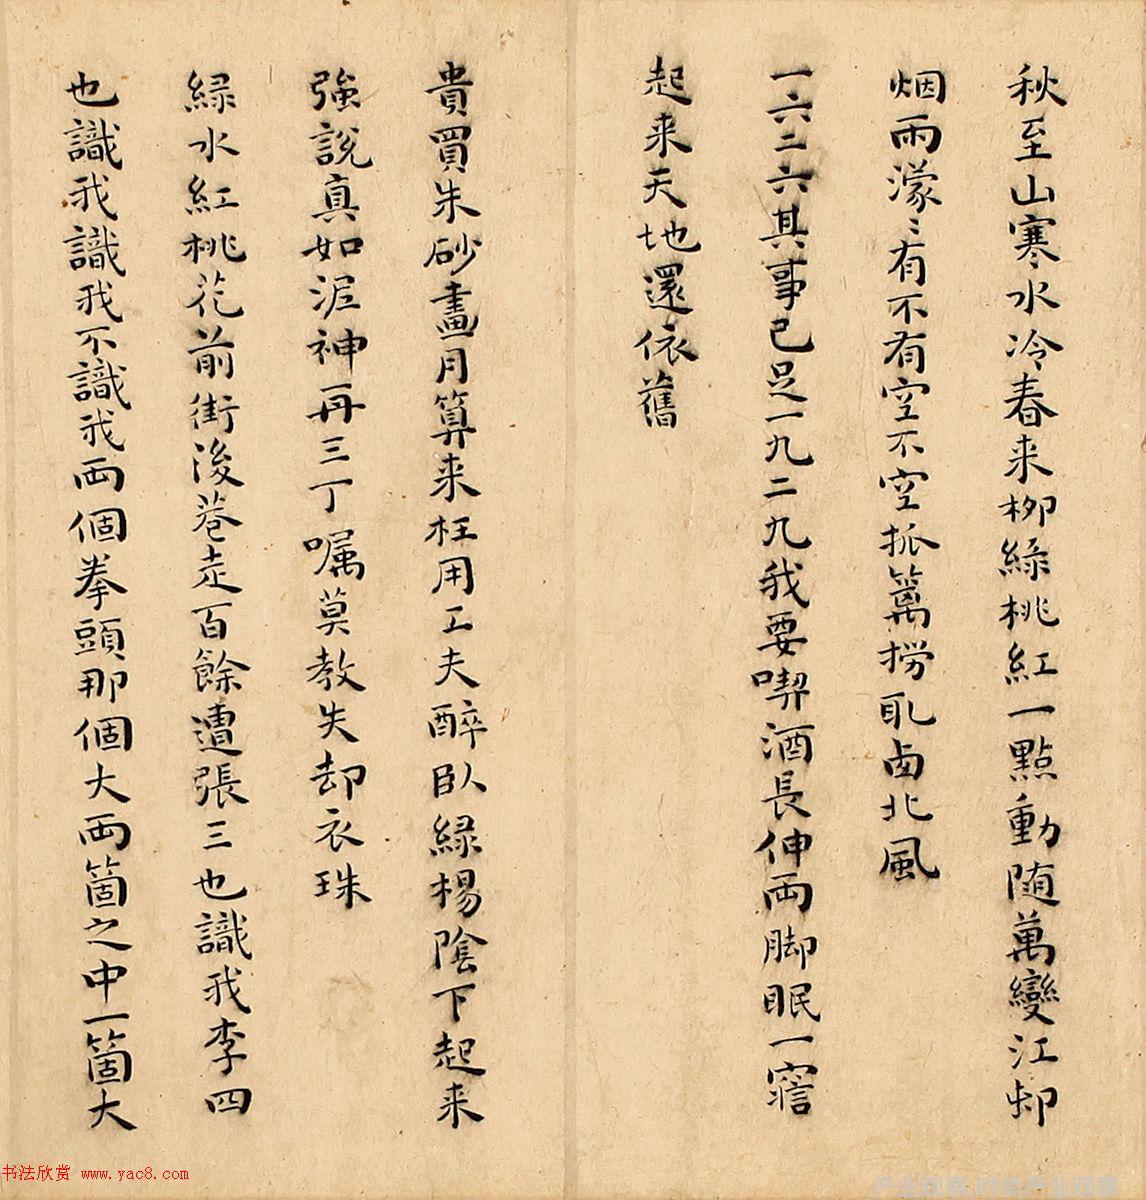 秋至山寒水冷春来柳綠桃紅一點動随萬變江邨
烟雨濛〻有不有空不空抓篱捞取西北風
一六二六其事已足一九二九我要喫酒長伸両脚眠一寤
起来天地還依舊
貴買朱砂畫月算来枉用工夫醉臥緑楊陰下起来
強說真如泥神再三丁嘱莫教失却衣珠
緑水紅桃花前街後巷走百餘遭張三也識我李四
也識我識我不識我両個拳頭那個大両箇之中一箇大
书法欣赏 www.yac8.com